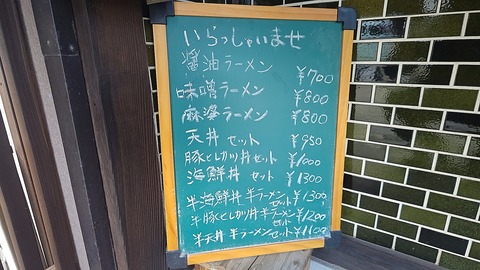 いらっしゃいませ
醤油ラーメン ¥700
味噌ラーメン ¥800
麻婆ラーメン ¥800
天丼 セット ¥950
豚とじカツ丼 セット ¥1000
海鮮丼 セット ¥1300
半海鮮丼 半ラーメンセット ¥1300
半豚とじカツ丼 半ラーメンセット ¥1200
半天丼 半ラーメンセット ¥1100